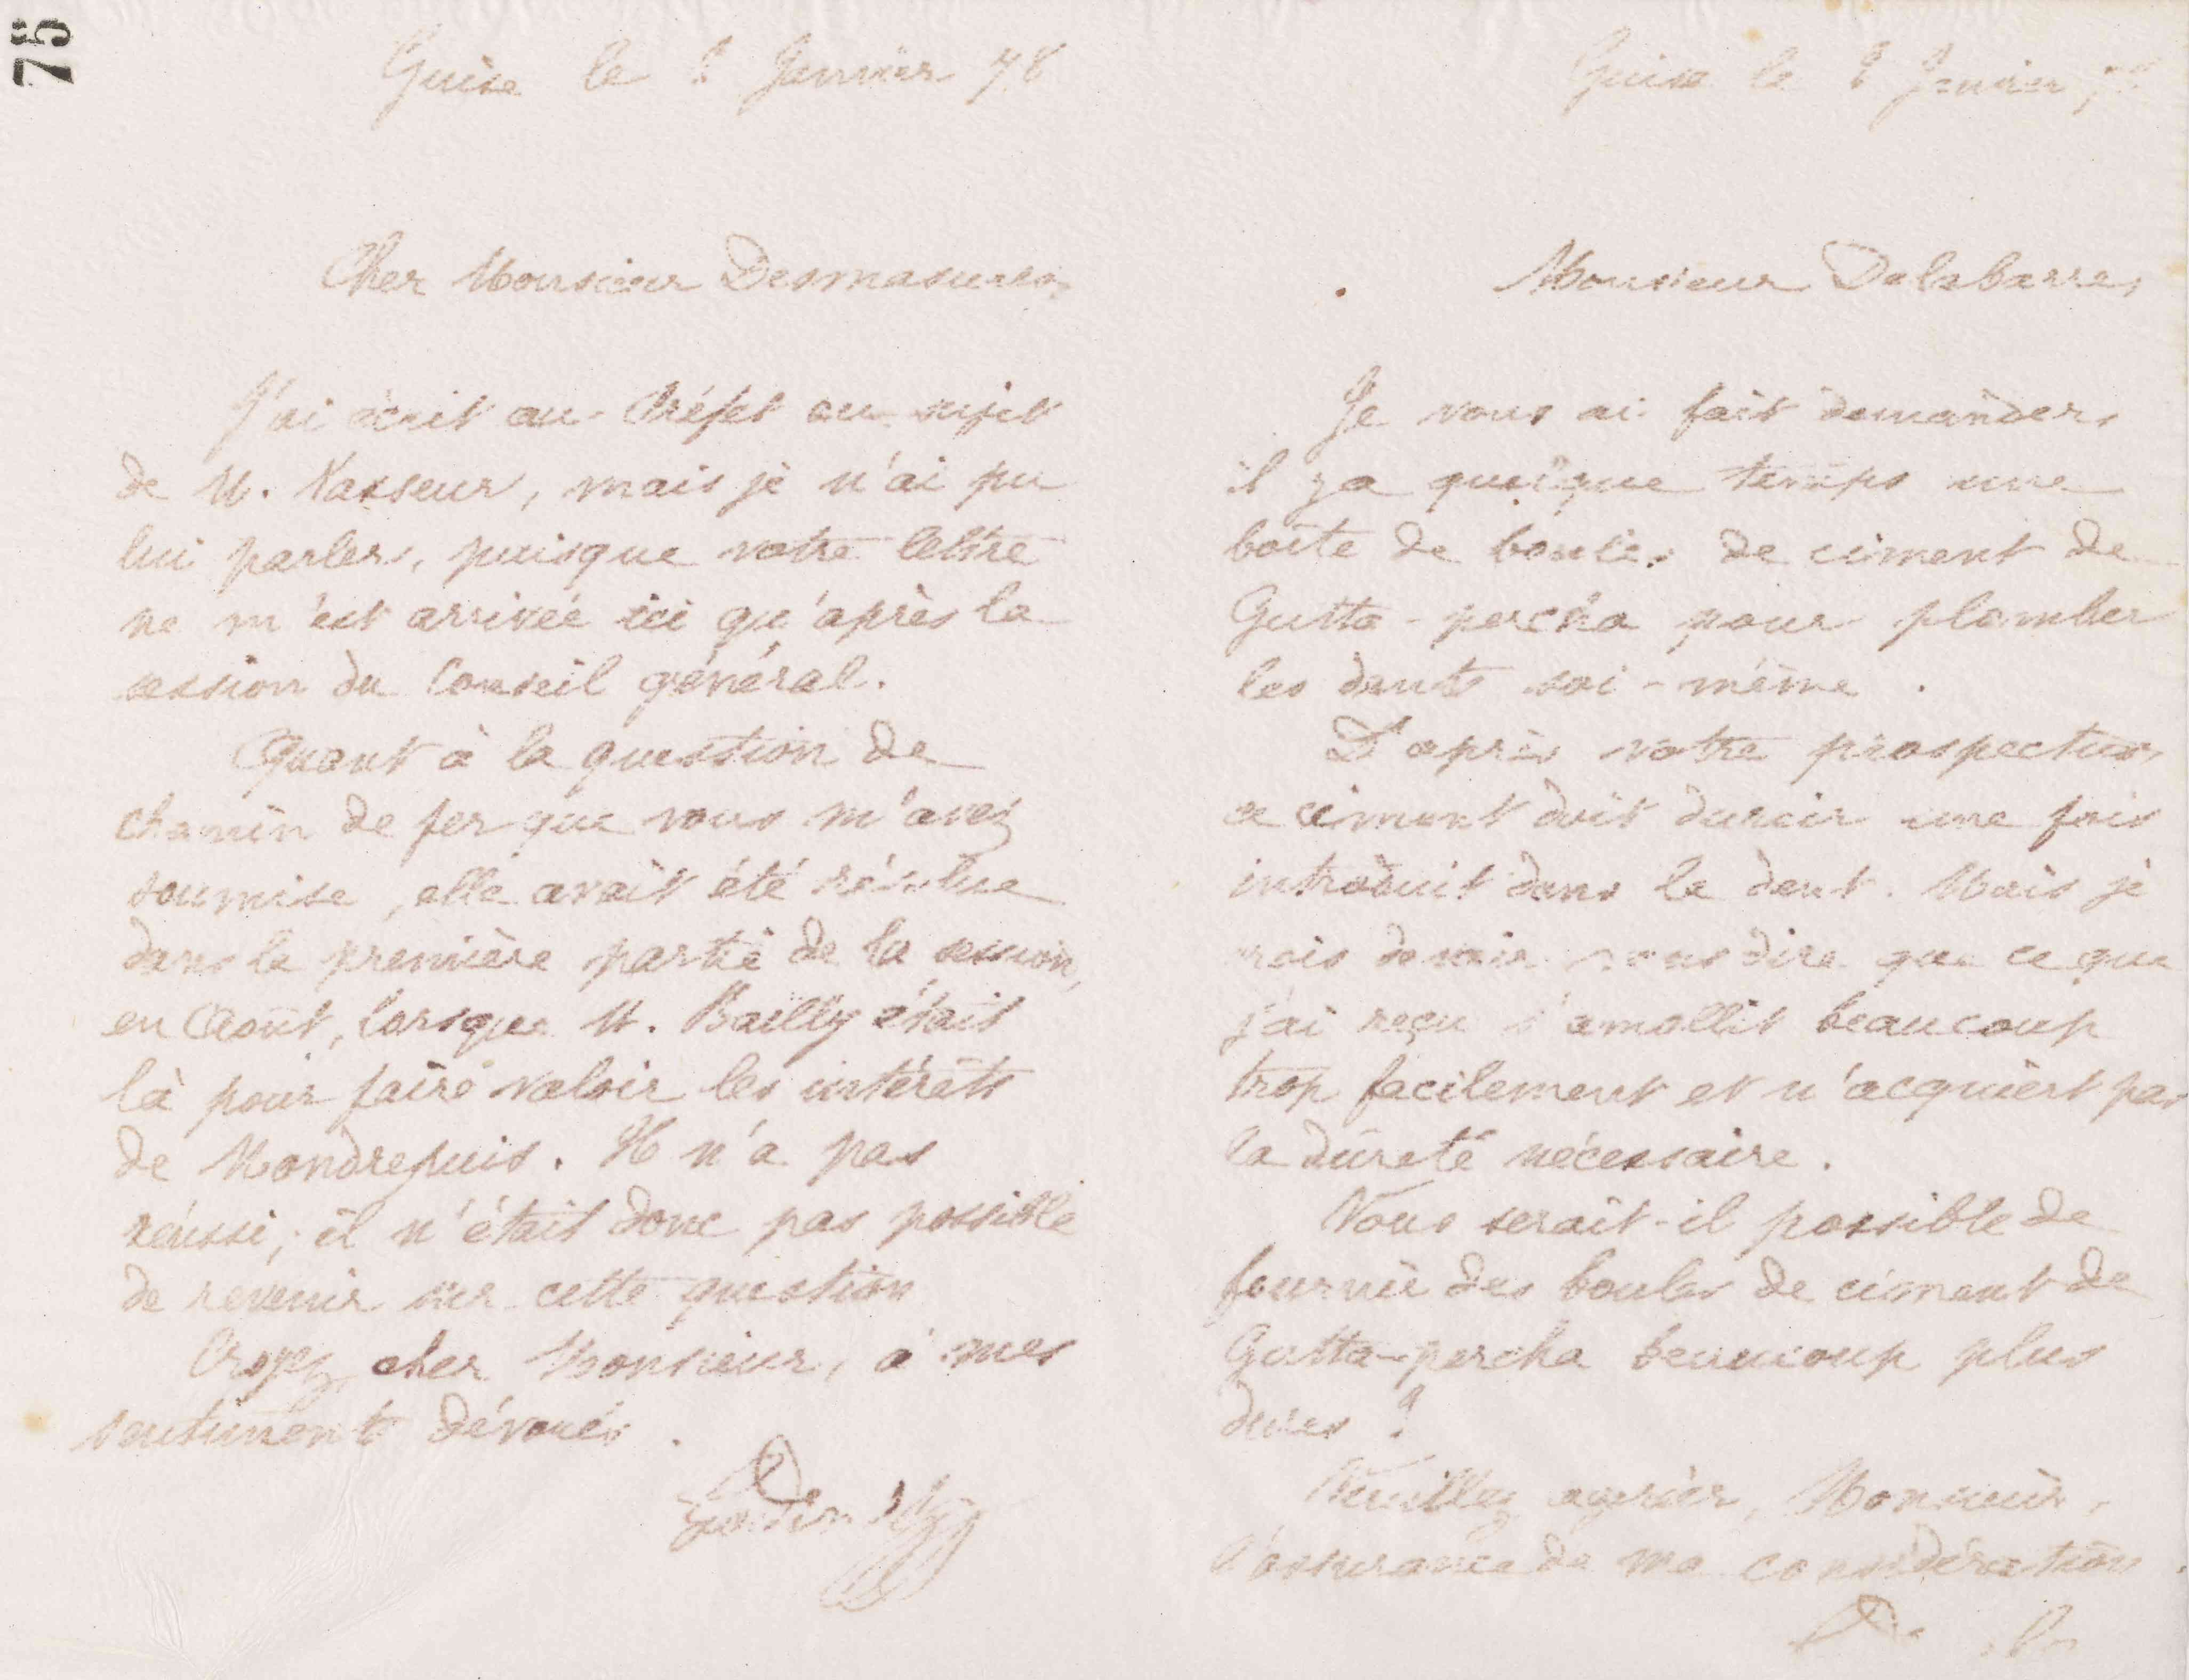 75
Guise le 8 Janvier 78
Cher Monsieur Desmasures,
J'ai écrit au Préfet au sujet
de M. Vasseur, mais je n'ai pu
lui parler, puisque votre lettre
ne m'est arrivée ici qu'après la
session du Conseil général.
Quant à la question de
chemin de fer que vous m'avez
soumise, elle avait été résolue
dans la première partie de la session,
en Août, lorsque M. Bailly était
là pour faire valoir les intérêts
de Mondrepuis. Il n'a pas
réussi; il n'était donc pas possible
de revenir sur cette question
Croyez, cher Monsieur, à mes
sentiments dévoués.
Godin
Guise le 8 Janvier 78
Monsieur Delabarre,
Je vous ai fait demander,
il y a quelque temps une
boîte de boules de ciment de
Gutta-percha pour plomber
les dents soi-même.
D'après votre prospectus,
ce ciment doit durcir une fois
introduit dans la dent. Mais je
crois devoir vous dire que ce que
j'ai reçu s'amollit beaucoup
trop facilement et n'acquiert pas
la dureté nécessaire.
Vous serait-il possible de
fournir des boules de ciment de
Gutta-percha beaucoup plus
dures ?
Veuillez agréer, Monsieur,
l'assurance de ma considération.